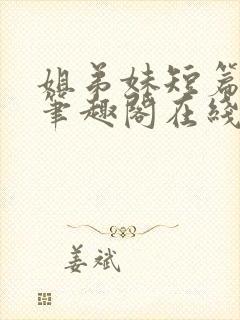 姐弟妹短篇
笔趣阁在线
姜斌